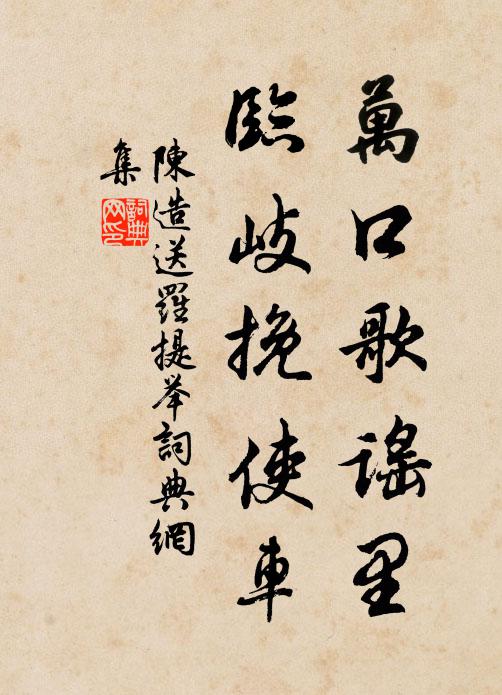 萬口歌謠里
臨歧挽使車
陳造送羅提举詞典網
集
詞典
网印